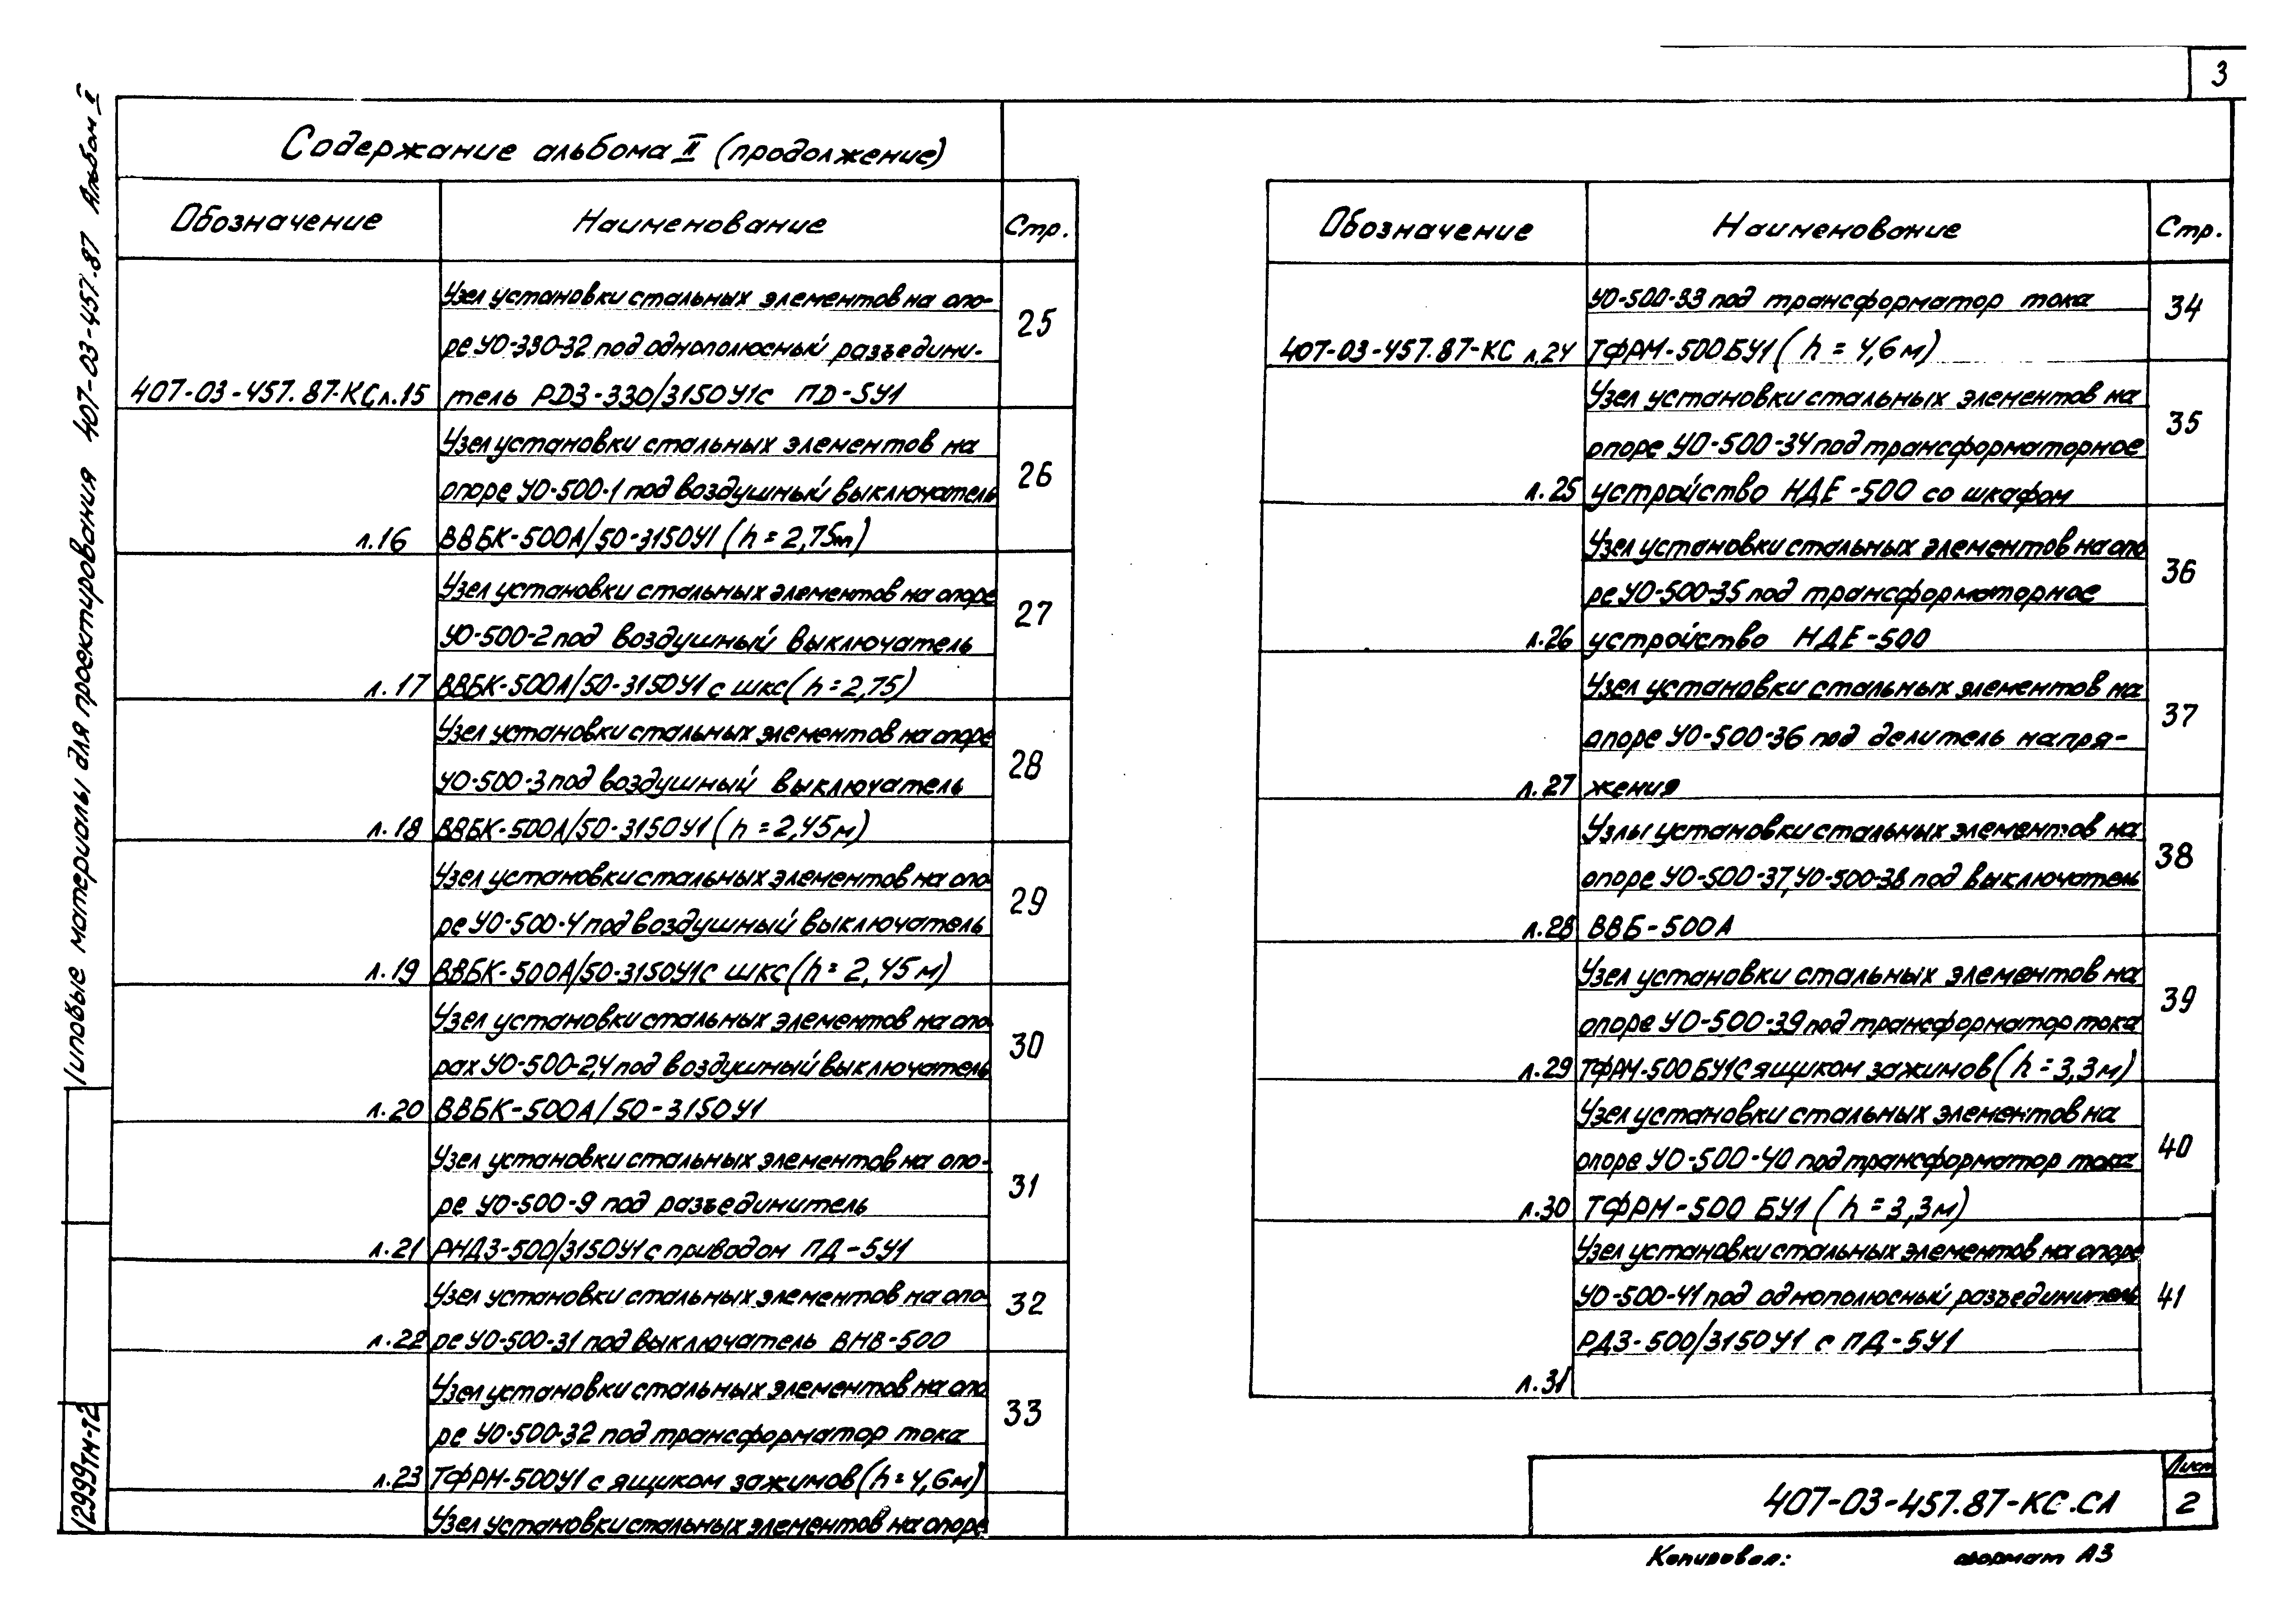 3
Типовые материалы для проектирования 407-03-457.87 Альбом II
Содержание альбома II (продолжение)
Обозначение Наименование Стр.
Узел установки стальных элементов на опо-
ре УО-330-32 под однополюсный разъедини-
407-03-457.87-КС л.15 тель РДЗ-330/3150У1с ПД-5У1 25
Узел установки стальных элементов на
опоре УО-500-1 под воздушный выключатель
л.16 ВВБК-500А/50-3150У1 (h=2,75м) 26
Узел установки стальных элементов на опоре
УО-500-2 под воздушный выключатель
л.17 ВВБК-500А/50-3150У1 с шкс (h=2,75) 27
Узел установки стальных элементов на опоре
УО-500-3 под воздушный выключатель
л.18 ВВБК-500А/50-3150У1 (h=2,45м) 28
Узел установки стальных элементов на опо-
ре УО-500-4 под воздушный выключатель
л.19 ВВБК-500А/50-3150У1с шкс (h=2,45м) 29
Узел установки стальных элементов на опо-
рах УО-500-2,4 под воздушный выключатель
л.20 ВВБК-500А/50-3150У1 30
Узел установки стальных элементов на опо-
ре УО-500-9 под разъединитель
л.21 РНДЗ-500/3150У1 с приводом ПД-5У1 31
Узел установки стальных элементов на опо-
л.22 ре УО-500-31 под выключатель ВНВ-500 32
Узел установки стальных элементов на опо
ре УО-500-32 под трансформатор тока
л.23 ТФРМ-500У1 с ящиком зажимов (h=4,6м) 33
Узел установки стальных элементов на опоре
Обозначение Наименование Стр.
УО-500-33 под трансформатор тока
407-03-457.87-КС л.24 ТФРМ-500БУ1 (h=4,6м) 34
Узел установки стальных элементов на
опоре УО-500-34 под трансформаторное
л.25 устройство НДЕ-500 со шкафом 35
Узел установки стальных элементов на опо
ре УО-500-35 под трансформаторное
л.26 устройство НДЕ-500 36
Узел установки стальных элементов на
опоре УО-500-36 под делитель напря-
л.27 жения 37
Узлы установки стальных элементов на
опоре УО-500-37, УО-500-38 под выключатель
л.28 ВВБ-500А 38
Узел установки стальных элементов на
опоре УО-500-39 под трансформатор тока
л.29 ТФРМ-500БУ1С ящиком зажимов (h=3,3м) 39
Узел установки стальных элементов на
опоре УО-500-40 под трансформатор тока
л.30 ТФРМ-500 БУ1 (h=3,3м) 40
Узел установки стальных элементов на опоре
УО-500-41 под однополюсный разъединитель
РДЗ-500/3150У1 с ПД-5У1 41
л.31
12999тм-т2
407-03-457.87-КС.СЛ
Лист
2
Копировал: формат А3